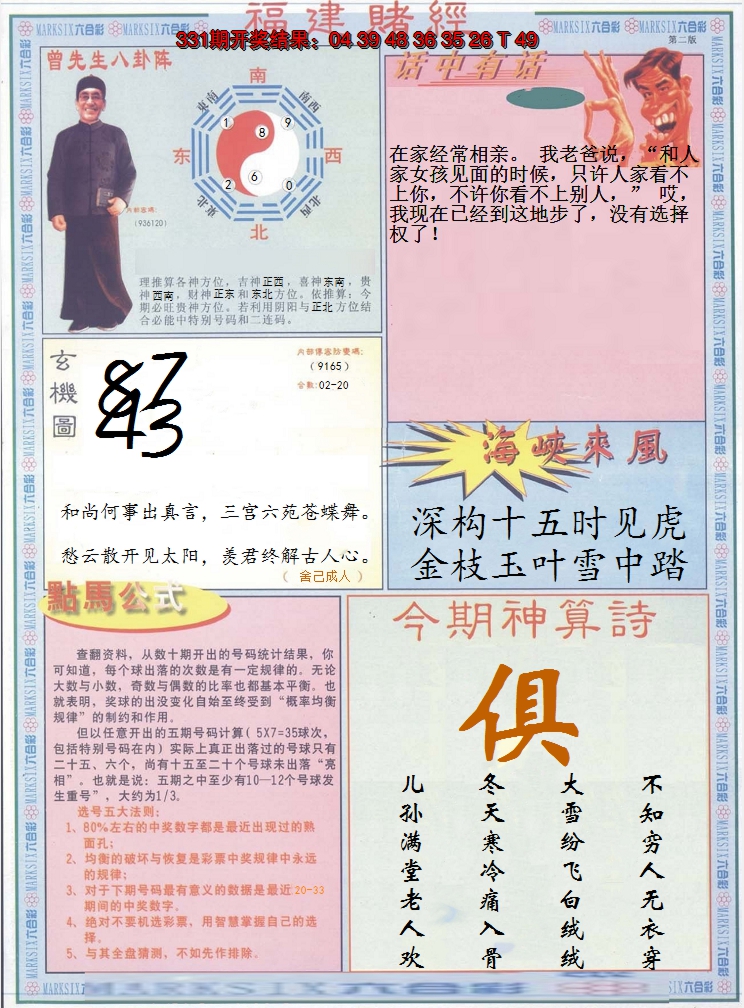 福建賭經
331期开奖结果：04 39 48 36 35 26 T 49
第二版
MARKSIX六合彩
曾先生八卦阵
南
东南
南西
1
8
9
东
西
2
6
0
東北
北西
北
内部密碼:
(936120)
理推算各神方位，吉神正西，喜神东南，贵
神西南，财神正东和东北方位。依推算：今
期必旺贵神方位。若利用阴阳与正北方位结
合必能中特别号码和二连码。
话中有话
在家经常相亲。 我老爸说，“和人
家女孩见面的时候，只许人家看不
上你，不许你看不上别人，” 哎，
我现在已经到这地步了，没有选择
权了！
玄機圖
87
43
(9165)
合數:02-20
和尚何事出真言，三宫六苑苍蝶舞。
愁云散开见太阳，羡君终解古人心。
（ 舍己成人 ）
海峽來風
深构十五时见虎
金枝玉叶雪中踏
點馬公式
查翻资料，从数十期开出的号码统计结果，你
可知道，每个球出落的次数是有一定规律的。无论
大数与小数，奇数与偶数的比率也都基本平衡。也
就表明，奖球的出没变化自始至终受到“概率均衡
规律”的制约和作用。
但以任意开出的五期号码计算( 5X7=35球次，
包括特别号码在内) 实际上真正出落过的号球只有
二十五、六个，尚有十五至二十个号球未出落“亮
相”。也就是说：五期之中至少有10—12个号球发
生重号”，大约为1/3。
选号五大法则：
1、80%左右的中奖数字都是最近出现过的熟
面孔；
2、均衡的破坏与恢复是彩票中奖规律中永远
的规律；
3、对于下期号码最有意义的数据是最近20-33
期间的中奖数字。
4、绝对不要机选彩票，用智慧掌握自己的选
择。
5、与其全盘猜测，不如先作排除。
今期神算詩
俱
不知穷人无衣穿
大雪纷飞白绒绒
冬天寒冷痛入骨
儿孙满堂老人欢